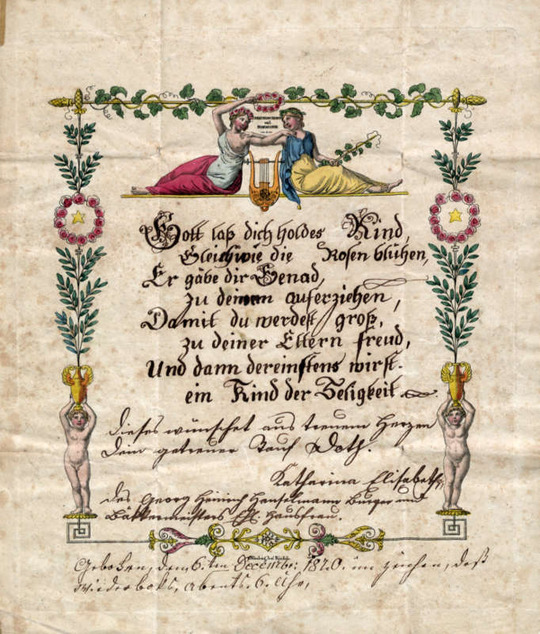 Gott laß dich holdes Kind
Gleichwie die Rosen blühen,
Er gäbe dir Genad,
zu deinem auferziehen,
Damit du werdest groß,
zu deiner Eltern freud,
Und dann dereinstens wirst.
ein Kind der Seligkeit.
Dieses wünschet aus treuem Herzen
Dein getreuer Tauf Doth.
Katharina Elisabetha,
des Georg Heinrich Burger und
Bäkkermeisters Hausfrau.
Gebohren, dem 6.ten December, 1820. im Zeichen, deß
abents. 6. Uhr,